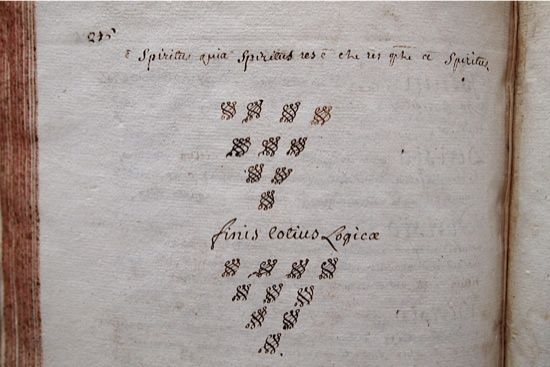 ē Spiritus quia Spiritus res ē Spiritus
finis totius Logicæ